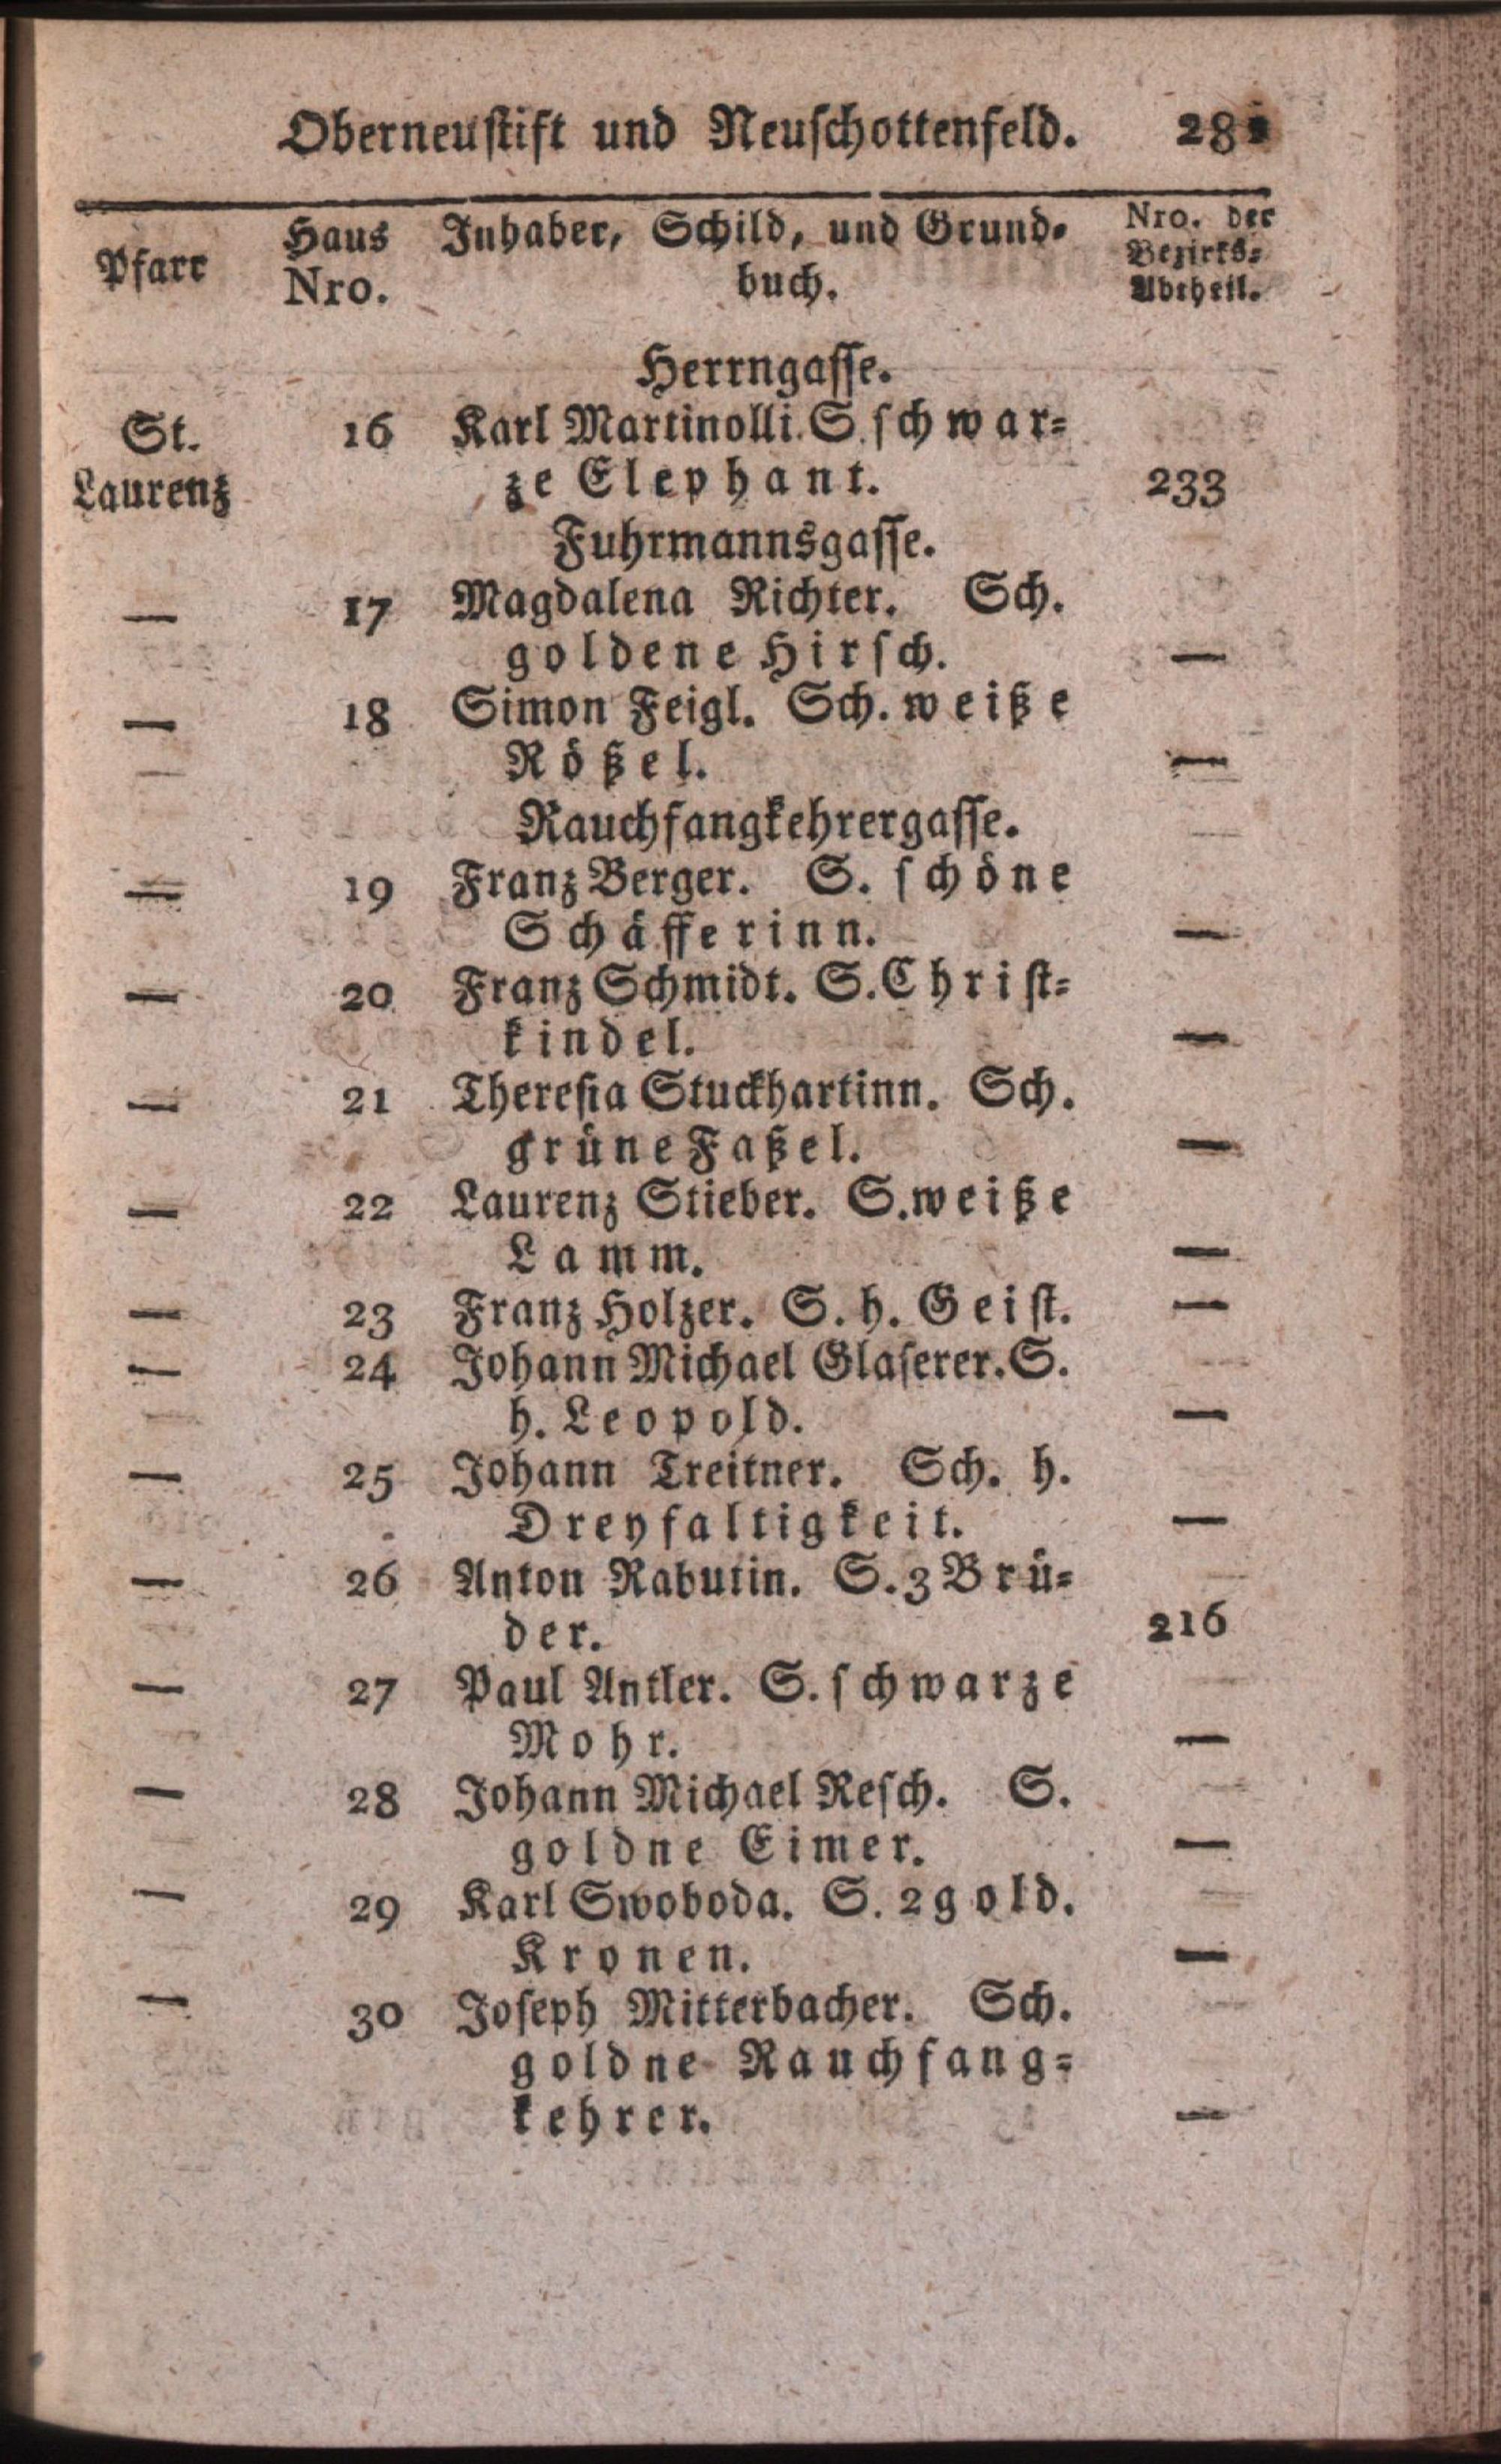 Oberneustift und Neuschottenfeld. 281
Pfarr Haus Nro. Inhaber, Schild, und Grund-
buch. Nro. der Bezirks-Abtheil.
Herrngasse.
St. 16 Karl Martinolli. S. schwar-
Laurenz ze Elephant. 233
Fuhrmannsgasse.
— 17 Magdalena Richter. Sch.
goldene Hirsch. —
— 18 Simon Feigl. Sch. weiße
Rößel. —
Rauchfangkehrergasse.
— 19 Franz Berger. S. schöne
Schäfferinn. —
— 20 Franz Schmidt. S. Christ-
kindel. —
— 21 Theresia Stuckhartinn. Sch.
grüne Faßel. —
— 22 Laurenz Stieber. S. weiße
Lamm. —
— 23 Franz Holzer. S. h. Geist. —
— 24 Johann Michael Glaserer. S.
h. Leopold. —
— 25 Johann Treitner. Sch. h.
Dreyfaltigkeit. —
— 26 Anton Rabutin. S. 3 Brü-
der. 216
— 27 Paul Antler. S. schwarze
Mohr. —
— 28 Johann Michael Resch. S.
goldne Eimer. —
— 29 Karl Swoboda. S. 2 gold.
Kronen. —
— 30 Joseph Mitterbacher. Sch.
goldne Rauchfang-
kehrer. —